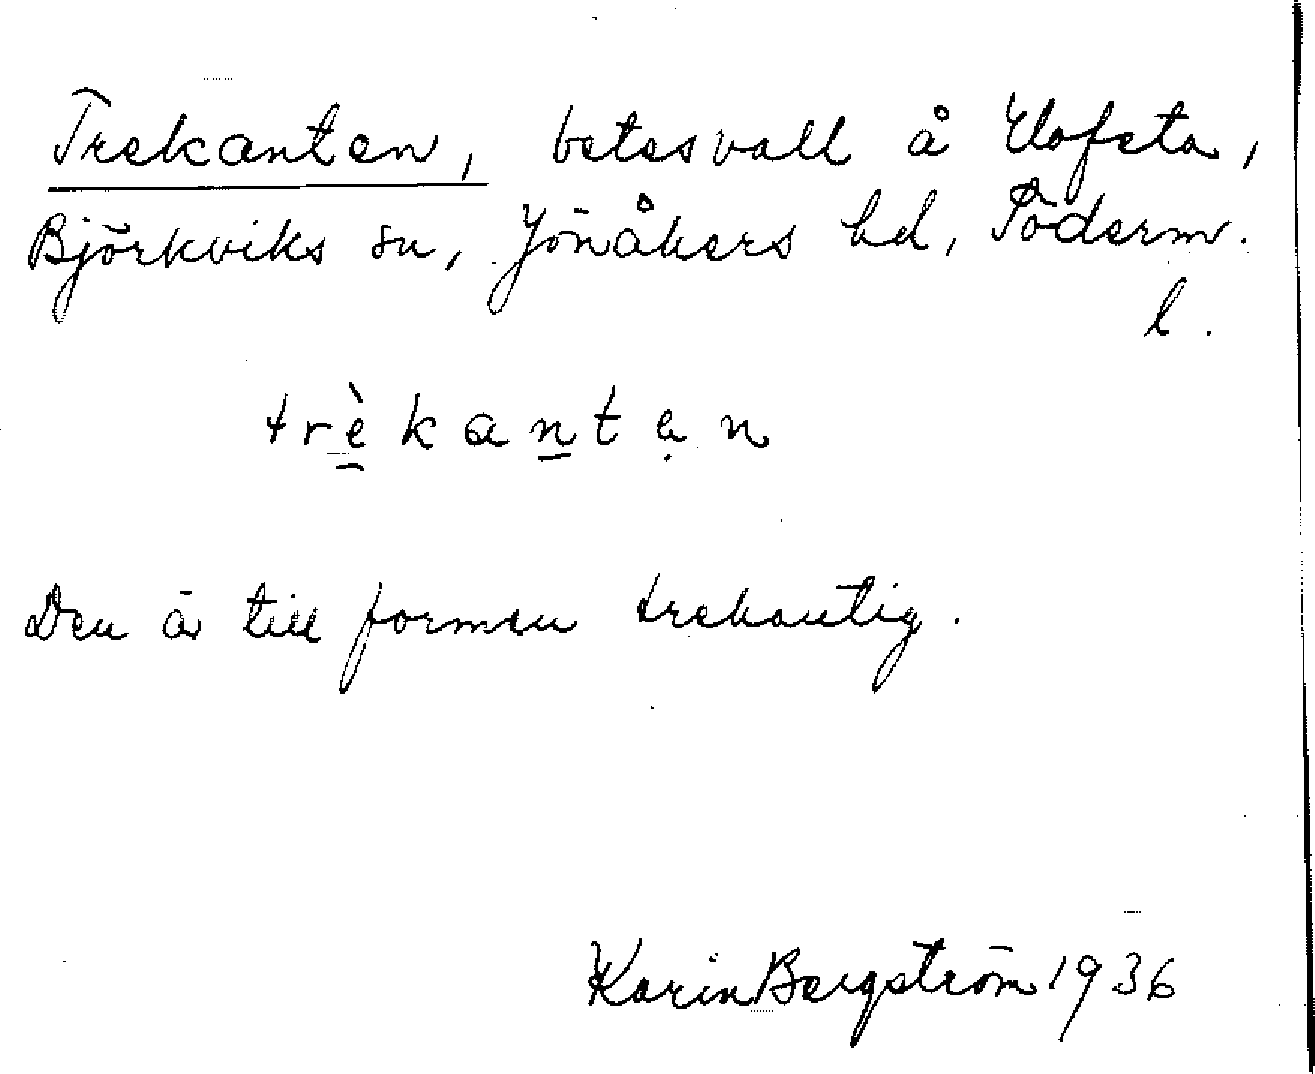 Trekanten, betesvall å Elofsta,
Björkviks sn, Jönåkers hd, Söderm.
l.
trèkantẹn
Den är till formen trekantig.
Karin Bergström 1936